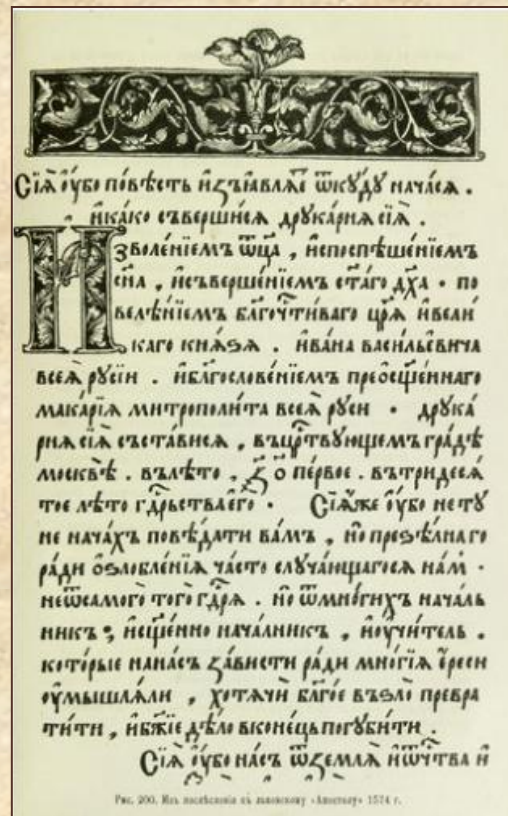 Сїѧ̀ ᲂу҆́бо по́вѣсть и҆зъꙗвлѧ́е ѿкꙋдꙋ нача́сѧ .
и҆ка́ко съверши́сѧ дрꙋка́рнѧ сїѧ̀ .
И҆зволе́нїемъ ѿц҃а , и҆поспѣше́нїемъ
сн҃а , и҆съверше́нїемъ ст҃а́го дх҃а · по
велѣ́нїемъ бл҃гочⷭ҇ти́ваго цр҃ѧ̀ и҆вели́
каго кнѧ́ѕѧ . и҆ва́на васи́льевича
всеѧ̀ рꙋсі́и . и҆бл҃гослове́нїемъ преѡсщ҃е́ннаго
мака́рїѧ митрополи́та всеѧ̀ рꙋси · дрꙋка́
рнѧ сїѧ̀ съста́висѧ , въцрⷭ҇твꙋющемъ гра́дѣ
москвѣ̀ . вълѣ́то , ҂з҃о пе́рвое . вътридесѧ́
тое лѣ́то гдⷭ҇рьства є҆гѡ̀ · Сїѧ́же ᲂу҆́бо не тꙋ
не нача́хъ повѣ́дати ва́мъ , но̀ презѣ́лнаго
ра́ди ѻ҆злобле́нїѧ ча́сто слꙋча́ющагосѧ на́м ·
не ѿсамого̀ того̀ гдⷭ҇рѧ . но̀ ѿмно́гихъ нача́ль
никъ , и҆сщ҃е́нно нача́лникъ , и҆ᲂу҆чи́тель .
кото́рые на на́съ за́висти ра́ди мно́гїѧ є҆́реси
ᲂу҆мышлѧ́ли , хотѧ́чи бл҃го́е въѕло̀ превра
ти́ти , и҆бж҃їе дѣ́ло вконе́цъ погꙋби́ти .
Сїѧ̀ ᲂу҆́бо на́съ ѿземлѧ̀ и҆ѿч҃тва и҆
Рис. 200. Изъ послѣсловія къ львовскому «Апостолу» 1574 г.